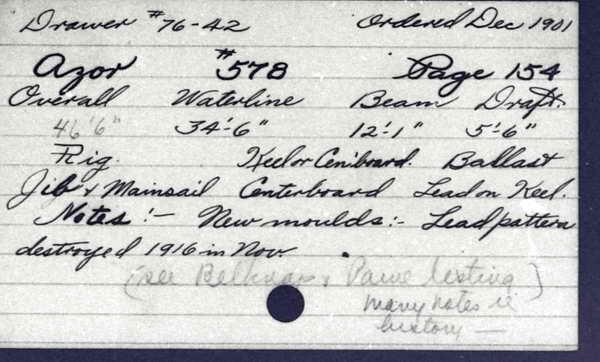 Drawer #76-42 Ordered Dec 1901
Azor #578 Page 154
Overall Waterline Beam Draft.
46'6" 34'-6" 12'-1" 5'-6"
Rig. Keel or Cen'board. Ballast
Jib & Mainsail Centerboard Lead on Keel.
Notes:- New moulds:- Lead pattern
destroyed 1916 in Nov.
[see Belknap & Paine listing]
many notes in
history —